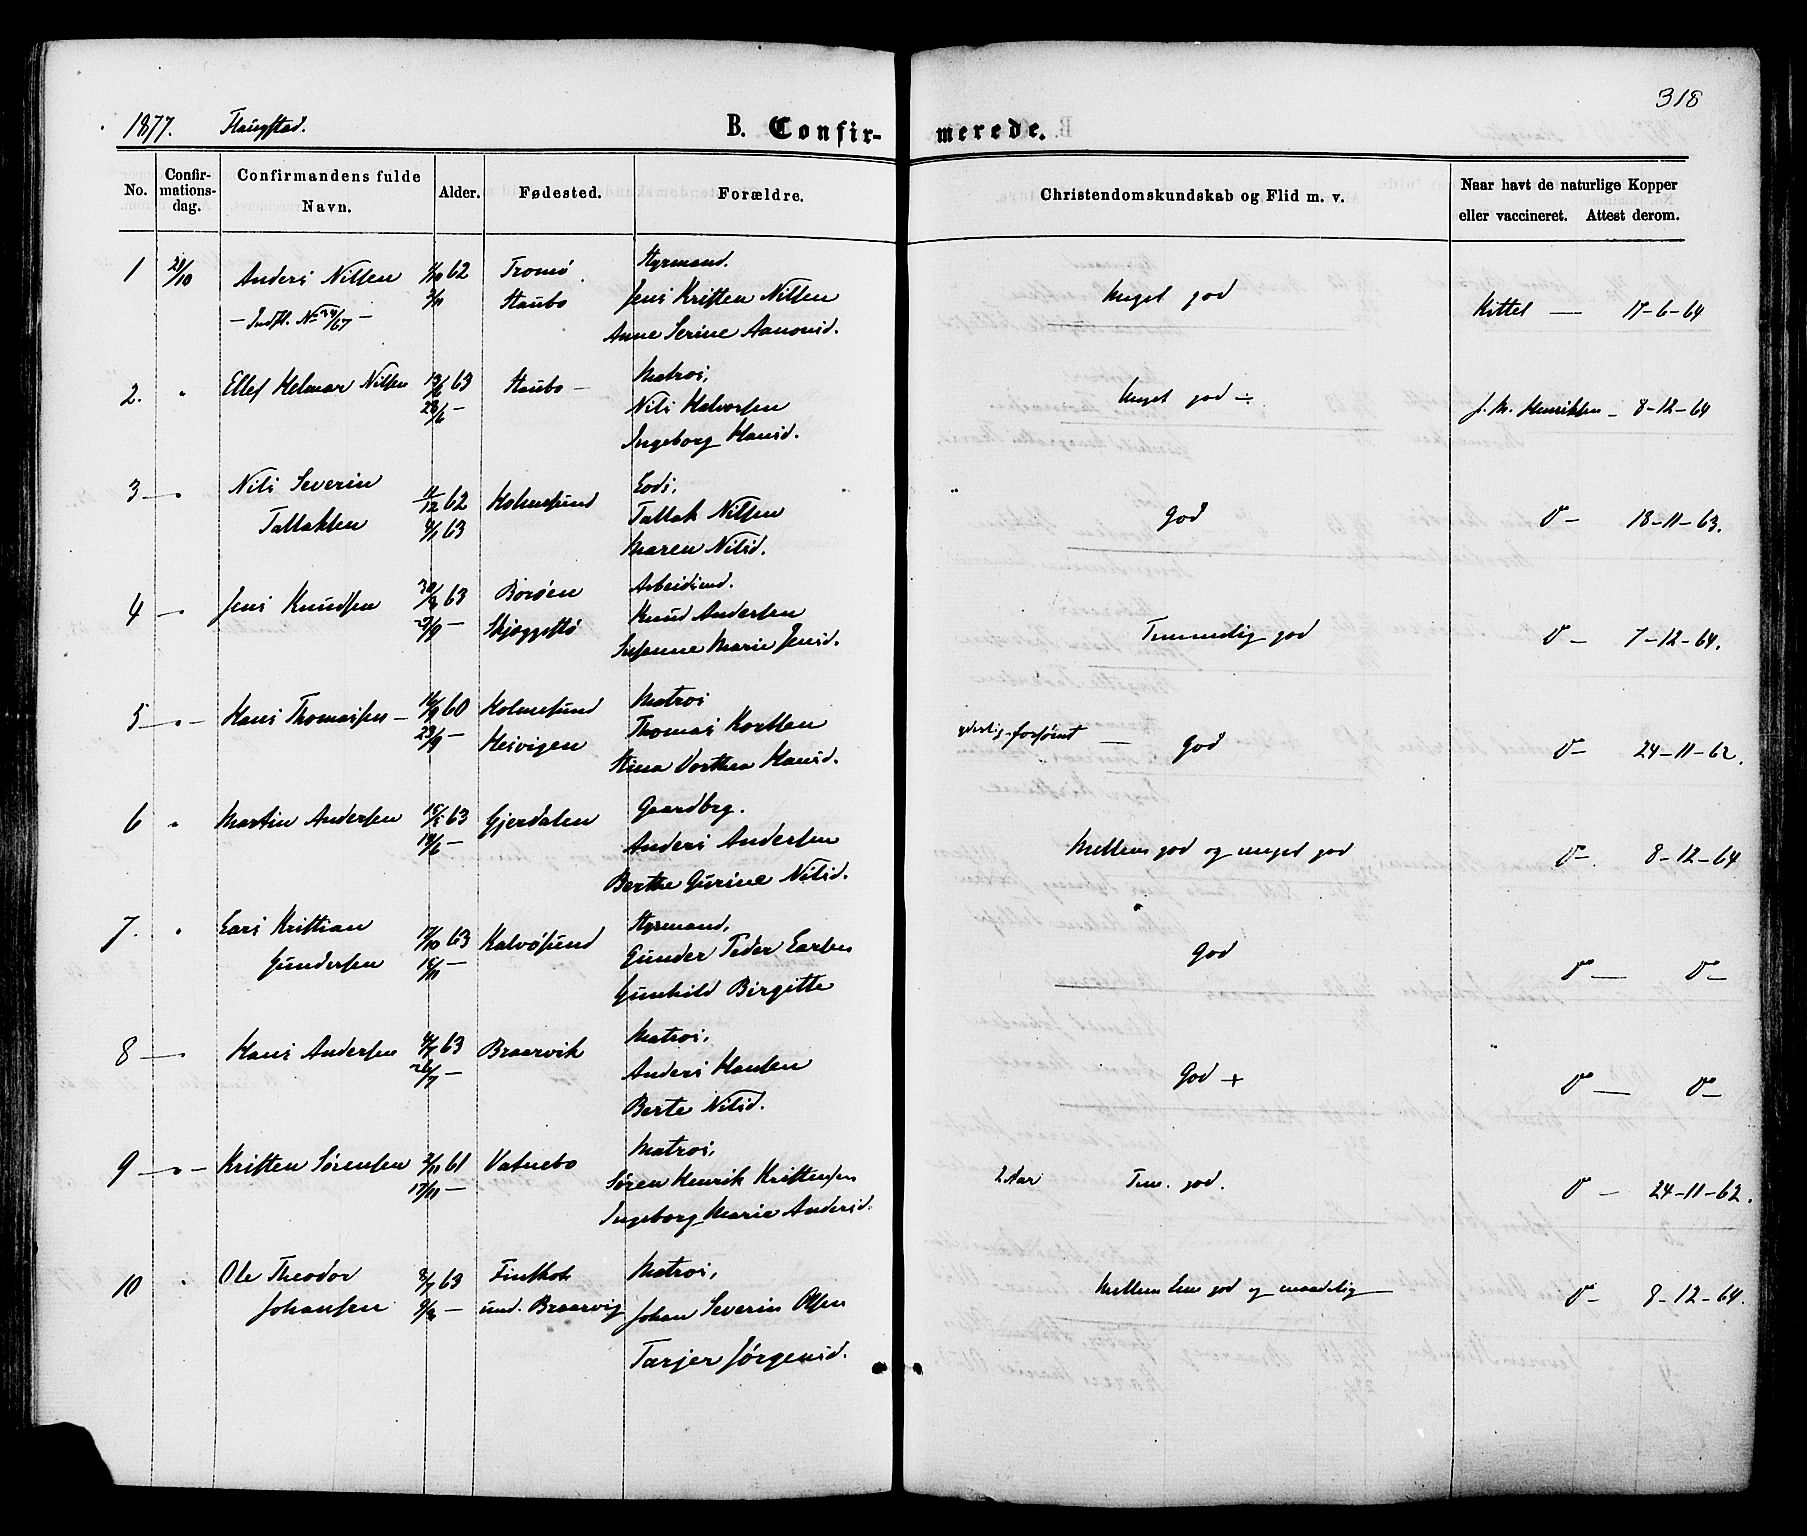 318
1877. Flangstad.
B. Confir-merede.
No. Confir-mations-dag. Confirmandens fulde Navn. Alder. Fødested. Forældre. Christendomskundskab og Flid m. v. Naar havt de naturlige Kopper eller vaccineret. Attest derom.
Styrmand.
1 21/10 Anders Nilssen 62 Tromø
- Indfl. No 24/67 - 2/11 Staubo Jens Kristen Nilssen Meget god Kittel — 17-6-64
Anne Serine Aanonsd.
2. " Ellef Helmar Nilssen 13/6 63 Staubo - Matros, Meget god ÷ J. N. Henriksen - 8-12-64
23/6 - Nils Halvorsen
Ingeborg Hansd.
3 - " Nils Severin Lods,
Tallaksen 11/12 62 Holmesund Tallak Nilssen God D - 18-11-63.
6/1 63 Maren Nilsd.
4 - " Jens Knudsen 30/8 63 Borøen Arbeidsmd.
27/9 - Skjæggestø Knud Andersen Temmelig god D - 7-12-64.
Susanne Marie Jensd.
5 - " - Hans Thomassen - 60 Holmesund Matros
23/9 - Hesvigen Thomas Knutsen forsømt — God D - 24-11-62.
Stina Dorthea Hansd.
6 " Martin Andersen 15/5 63 Gjerdalen Gaardbrg.
14/6 - Anders Andersen Mellem god og meget god D - 8-12-64
Berthe Gurine Nilsd.
7. " Lars Kristian Styrmand,
Gundersen 17/10 63 Kalvøsund Gunder Peder Larsen God D — D -
15/11 - Gunhild Birgitte
8 - " Hans Andersen 4/7 63 Braarvik Matros,
26/7 - Anders Hansen God + D — D -
Berte Nilsd.
9 - " - Kristen Sørensen 2/11 61 Vatnebo Matros,
17/11 - Søren Henrik Kristensen 2 Aar Tem. god. D - 24-11-62.
Ingeborg Marie Andersd.
10 " Ole Theodor 8/7 63 Finskot Matros,
Johansen 9/8 - und. Braarvig Johan Severin Olsen Mellem tem god og maadelig D - 8-12-64.
Tarjer Jørgensd.